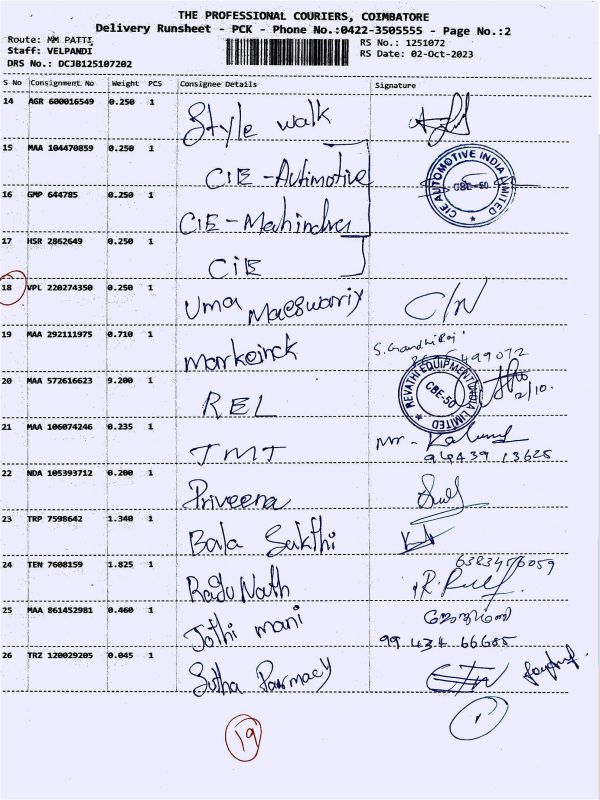 THE PROFESSIONAL COURIERS, COIMBATORE
Delivery Runsheet - PCK - Phone No.:0422-3505555 - Page No.:2
Route: MM PATTI
RS No.: 1251072
Staff: VELPANDI
RS Date: 02-Oct-2023
DRS No.: DCJB125107202
S No Consignment No Weight PCS Consignee Details Signature
14 AGR 600016549 0.250 1 Style walk
15 MAA 104470859 0.250 1 CIE - Autimotive
CIE AUTOMOTIVE INDIA LIMITED ★ CBE-50
16 GMP 644785 0.250 1 CIE - Mahindra
17 HSR 2862649 0.250 1 CiE
18 VPL 220274350 0.250 1 Uma Maeswariy C/N
19 MAA 292111975 0.710 1 Markeinck
499072
20 MAA 572616623 9.200 1 REL
REVATHI EQUIPMENT INDIA LIMITED ★ CBE-50
2/10.
21 MAA 106074246 0.235 1 TMT Mr -
94439 13625
22 NDA 105393712 0.200 1 Priveena
23 TRP 7598642 1.340 1 Bala Sakthi
24 TEN 7608159 1.825 1 Ragu Nath
25 MAA 861452981 0.460 1 Jothi mani ஜோதிமணி
99 434 66685
26 TRZ 120029205 0.045 1 Sutha Parmacy
19